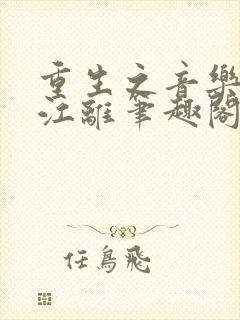 重生之音樂
江離筆趣閣
任鳥飛